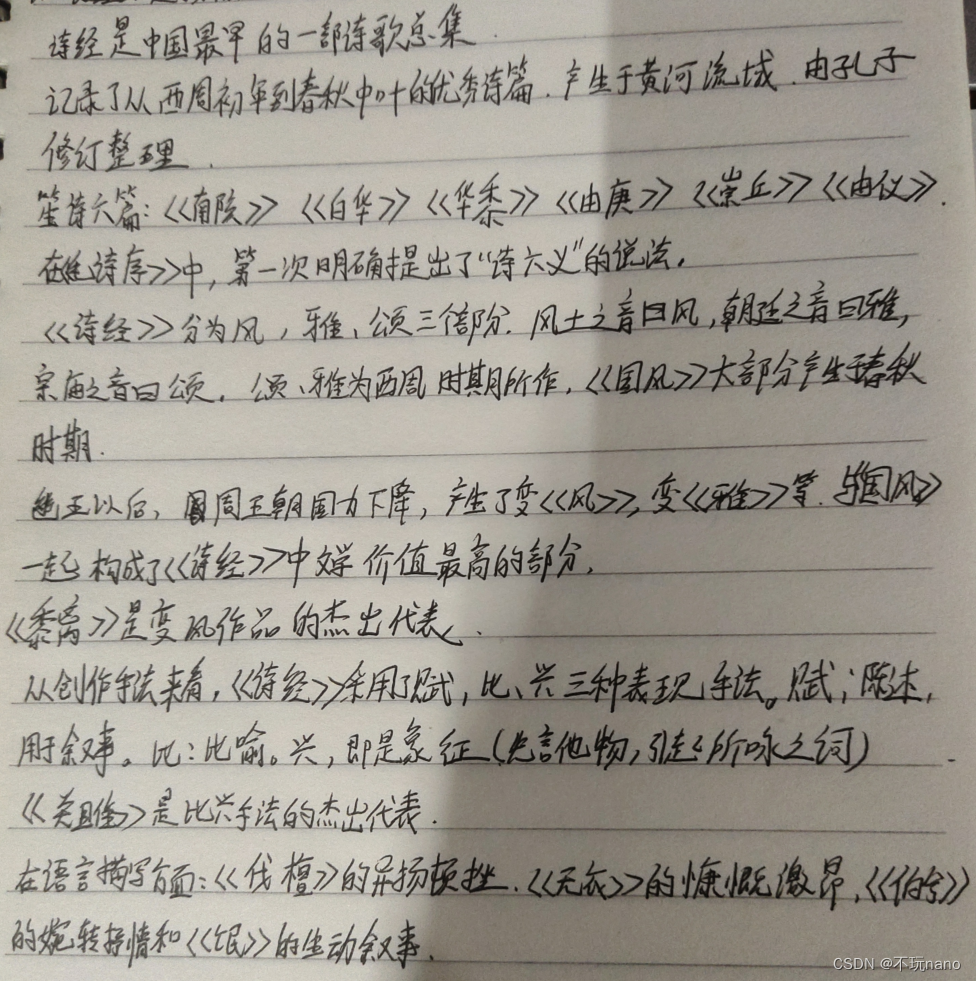 诗经是中国最早的一部诗歌总集.
记录了从西周初年到春秋中叶的优秀诗篇.产生于黄河流域.由孔子
修订整理.
笙诗六篇:《南陔》《白华》《华黍》《由庚》《崇丘》《由仪》.
在《诗序》中,第一次明确提出了“诗六义”的说法.
《诗经》分为风,雅、颂三部分.风土之音曰风,朝廷之音曰雅,
宗庙之音曰颂.颂、雅为西周时期所作,《国风》大部分产生于春秋
时期.
幽王以后,周王朝国力下降,产生了变《风》,变《雅》等.与《国风》
一起构成了《诗经》中文学价值最高的部分.
《黍离》是变风作品的杰出代表.
从创作手法来看,《诗经》采用了赋,比、兴三种表现手法。赋;陈述,
用于叙事。比:比喻。兴,即是象征(先言他物,引起所咏之词)
《关雎》是比兴手法的杰出代表.
在语言描写方面:《伐檀》的异扬顿挫.《无衣》的慷慨激昂,《伯兮》
的婉转抒情和《氓》的生动叙事.
CSDN @不玩nano